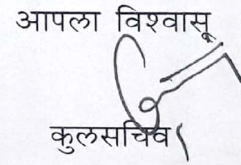 आपला विश्वासू
कुलसचिव